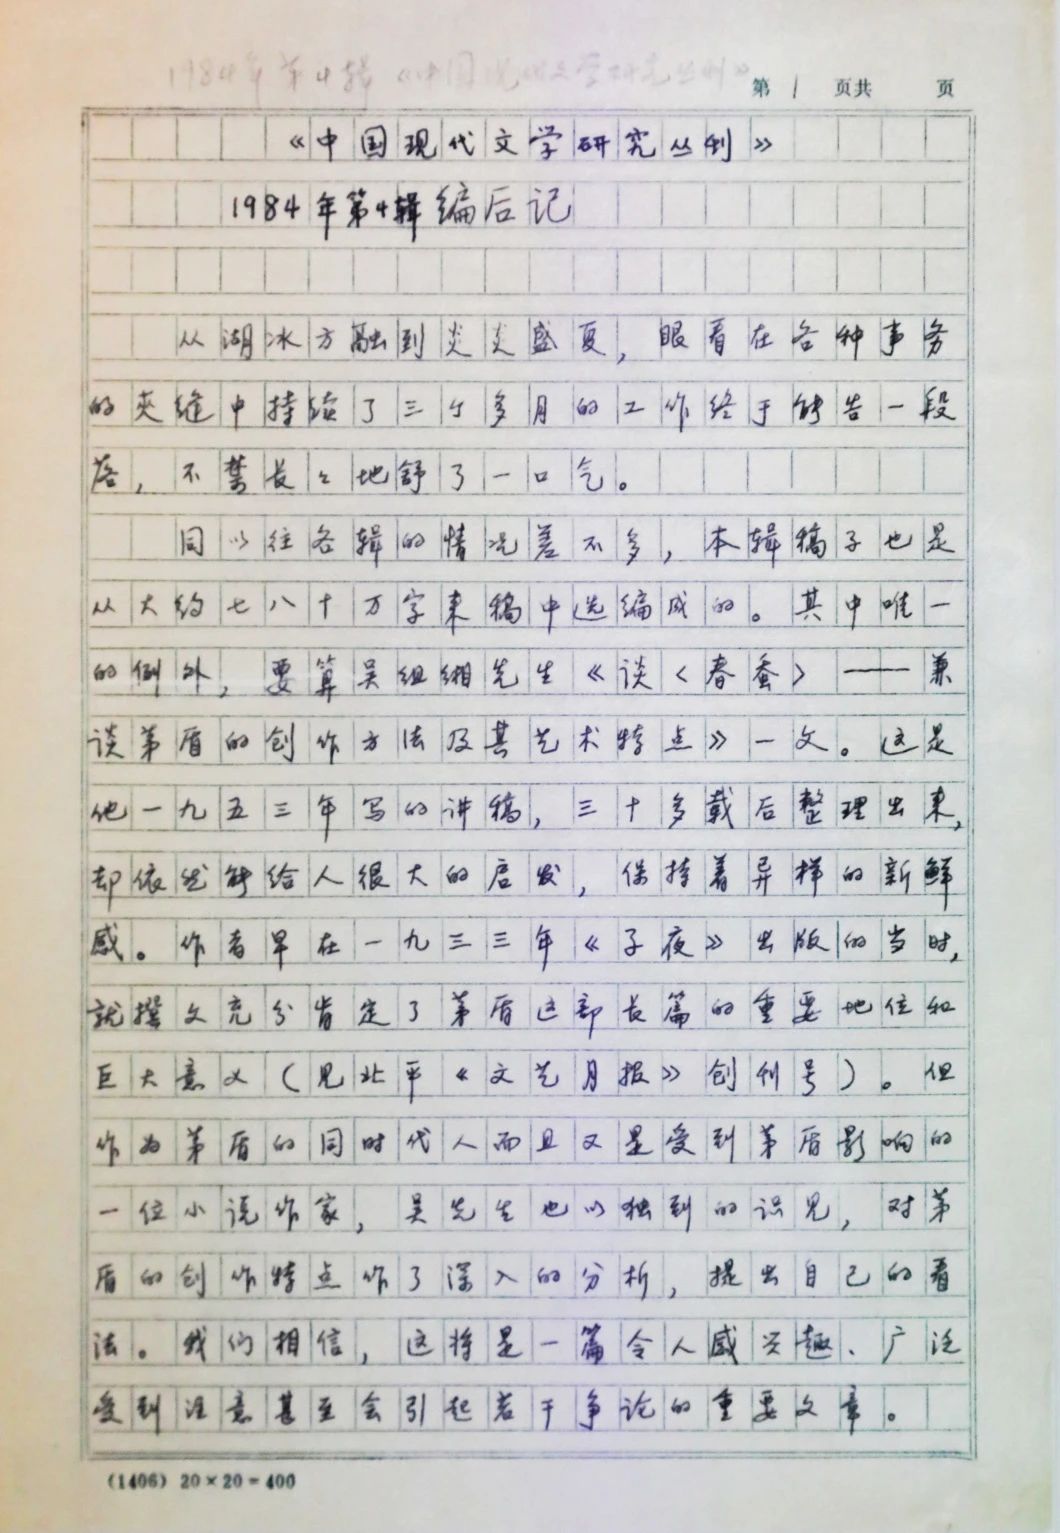 1984年第4辑《中国现代文学研究丛刊》
第1页共 页
《中国现代文学研究丛刊》
1984年第4辑编后记
从湖冰方融到炎炎盛夏，眼看在各种事务
的夹缝中持续了三个多月的工作终于能告一段
落，不禁长々地舒了一口气。
同以往各辑的情况差不多，本辑稿子也是
从大约七八十万字来稿中选编成的。其中唯一
的例外，要算吴组缃先生《谈〈春蚕〉——兼
谈茅盾的创作方法及其艺术特点》一文。这是
他一九五三年写的讲稿，三十多载后整理出来，
却依然能给人很大的启发，保持着异样的新鲜
感。作者早在一九三三年《子夜》出版的当时，
就撰文充分肯定了茅盾这部长篇的重要地位和
巨大意义（见北平《文艺月报》创刊号）。但
作为茅盾的同时代人而且又是受到茅盾影响的
一位小说作家，吴先生也以独到的识见，对茅
盾的创作特点作了深入的分析，提出自己的看
法。我们相信，这将是一篇令人感兴趣、广泛
受到注意甚至会引起若干争论的重要文章。
(1406) 20×20=400